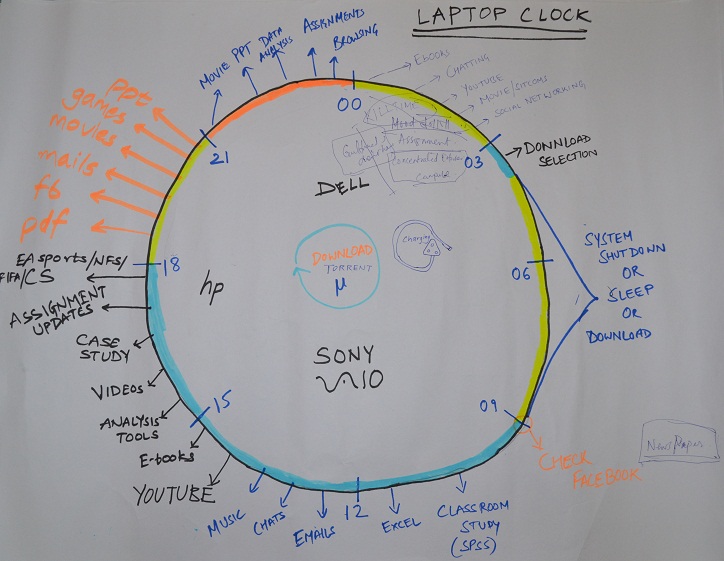 LAPTOP CLOCK
MOVIE
PPT
DATA
ANALYSIS
ASSIGNMENTS
BROWSING
EBOOKS
CHATTING
YOUTUBE
MOVIE/SITCOMS
SOCIAL NETWORKING
00
03
DOWNLOAD
SELECTION
06
SYSTEM
SHUTDOWN
OR
SLEEP
OR
DOWNLOAD
09
CHECK
FACEBOOK
News/Papers
CLASSROOM
STUDY
(SPSS)
EXCEL
12
EMAILS
CHATS
MUSIC
YOUTUBE
E-books
15
ANALYSIS
TOOLS
VIDEOS
CASE
STUDY
ASSIGNMENT
UPDATES
EA sports/NFS/
FIFA/CS
18
pdf
fb
mails
movies
games
PPt
21
KILLTIME
Assignment
DELL
Charging
DOWNLOAD
TORRENT
µ
hp
SONY
VAIO